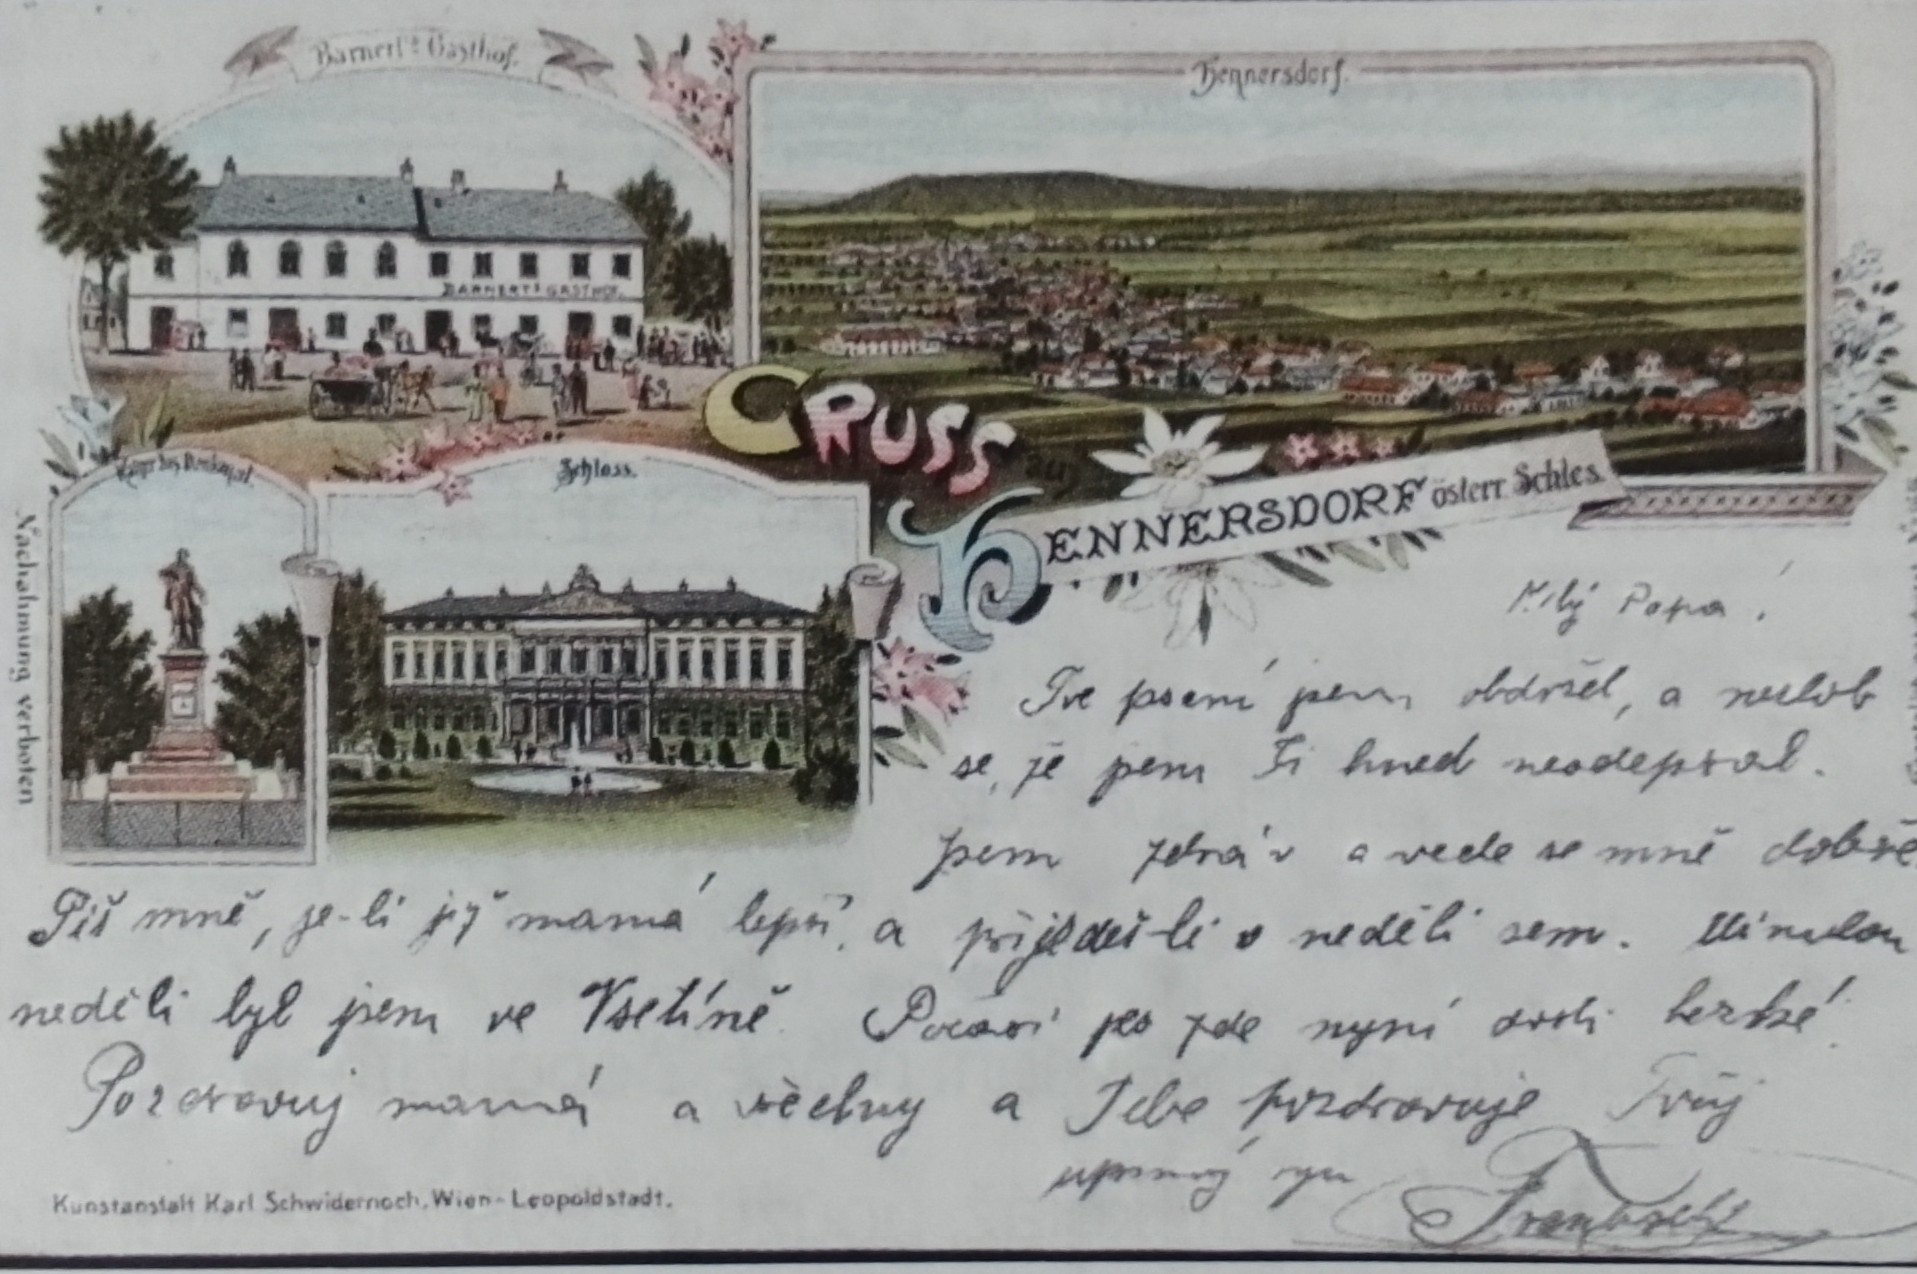 Barnert's Gasthof.
Hennersdorf.
BARNERT'S GASTHOF.
GRUSS
zu
HENNERSDORF österr. Schles.
Schloss.
Nachahmung verboten
Milý Papa!
Tvé psaní jsem obdržel, a nezlob
se, že jsem Ti hned neodepsal.
Jsem zdráv a vede se mně dobře
Piš mně, je-li již mamá lepší, a přijedeš-li v neděli sem. Minulou
neděli byl jsem ve Vsetíně. Počasí jes zde nyní dosti hezké.
Pozdravuj mamá a všechny a Tebe pozdravuje Tvůj
upřímný syn
Kunstanstalt Karl Schwidernoch, Wien-Leopoldstadt.